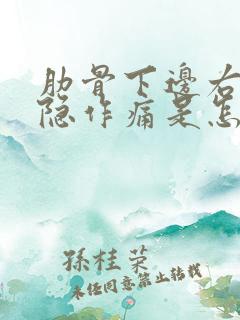 肋骨下邊右
隐作痛是怎
孫桂荣
未经同意禁止转载